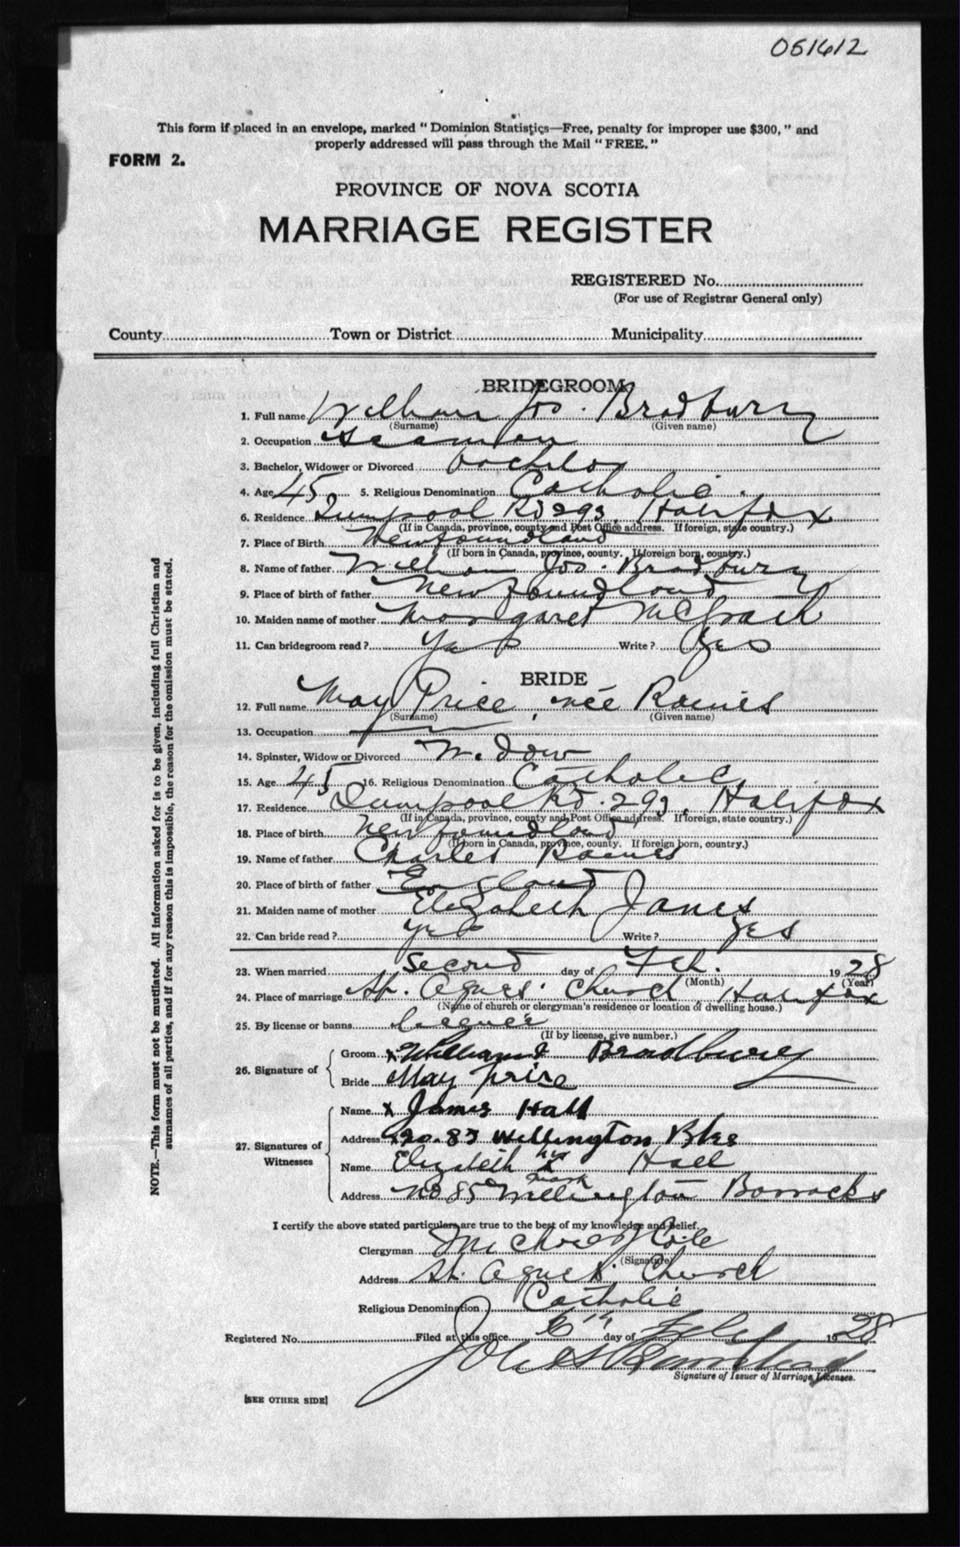 051612
This form if placed in an envelope, marked "Dominion Statistics—Free, penalty for improper use $300," and
properly addressed will pass through the Mail "FREE."
FORM 2.
PROVINCE OF NOVA SCOTIA
MARRIAGE REGISTER
REGISTERED No.
(For use of Registrar General only)
County Town or District Municipality
BRIDEGROOM
1. Full name William Jos. Bradbury
(Surname) (Given name)
2. Occupation Seaman
3. Bachelor, Widower or Divorced bachelor
4. Age 45 5. Religious Denomination Catholic.
6. Residence Rd 293, Halifax
(If in Canada, province, county and Post Office address. If foreign, state country.)
7. Place of Birth Newfoundland
(If born in Canada, province, county. If foreign born, country.)
8. Name of father William Jos. Bradbury
9. Place of birth of father Newfoundland
10. Maiden name of mother Margaret McGrath
11. Can bridegroom read? Yes Write? Yes
BRIDE
12. Full name May Price, née Raines
(Surname) (Given name)
13. Occupation
14. Spinster, Widow or Divorced Widow
15. Age 45 16. Religious Denomination Catholic
17. Residence Rd. 293, Halifax
(If in Canada, province, county and Post Office address. If foreign, state country.)
18. Place of birth Newfoundland
(If born in Canada, province, county. If foreign born, country.)
19. Name of father Charles Raines
20. Place of birth of father England
21. Maiden name of mother Elizabeth Janes
22. Can bride read? Yes Write? Yes
23. When married Second day of Feb. 1928
(Month) (Year)
24. Place of marriage St. Agnes' Church, Halifax
(Name of church or clergyman's residence or location of dwelling house.)
25. By license or banns license
(If by license, give number.)
26. Signature of
Groom x William J Bradbury
Bride May Price
27. Signatures of
Witnesses
Name x James Hall
Address No. 85 Wellington Bks
Name Elizabeth her x mark Hall
Address No 85 Wellington Barracks
I certify the above stated particulars are true to the best of my knowledge and belief.
Clergyman Michael
(Signature)
Address St. Agnes' Church
Religious Denomination Catholic
Registered No. Filed at this office 6th day of Feby 1928
Signature of Issuer of Marriage Licenses.
[SEE OTHER SIDE]
NOTE.—This form must not be mutilated. All information asked for is to be given, including full Christian and
surnames of all parties, and if for any reason this is impossible, the reason for the omission must be stated.